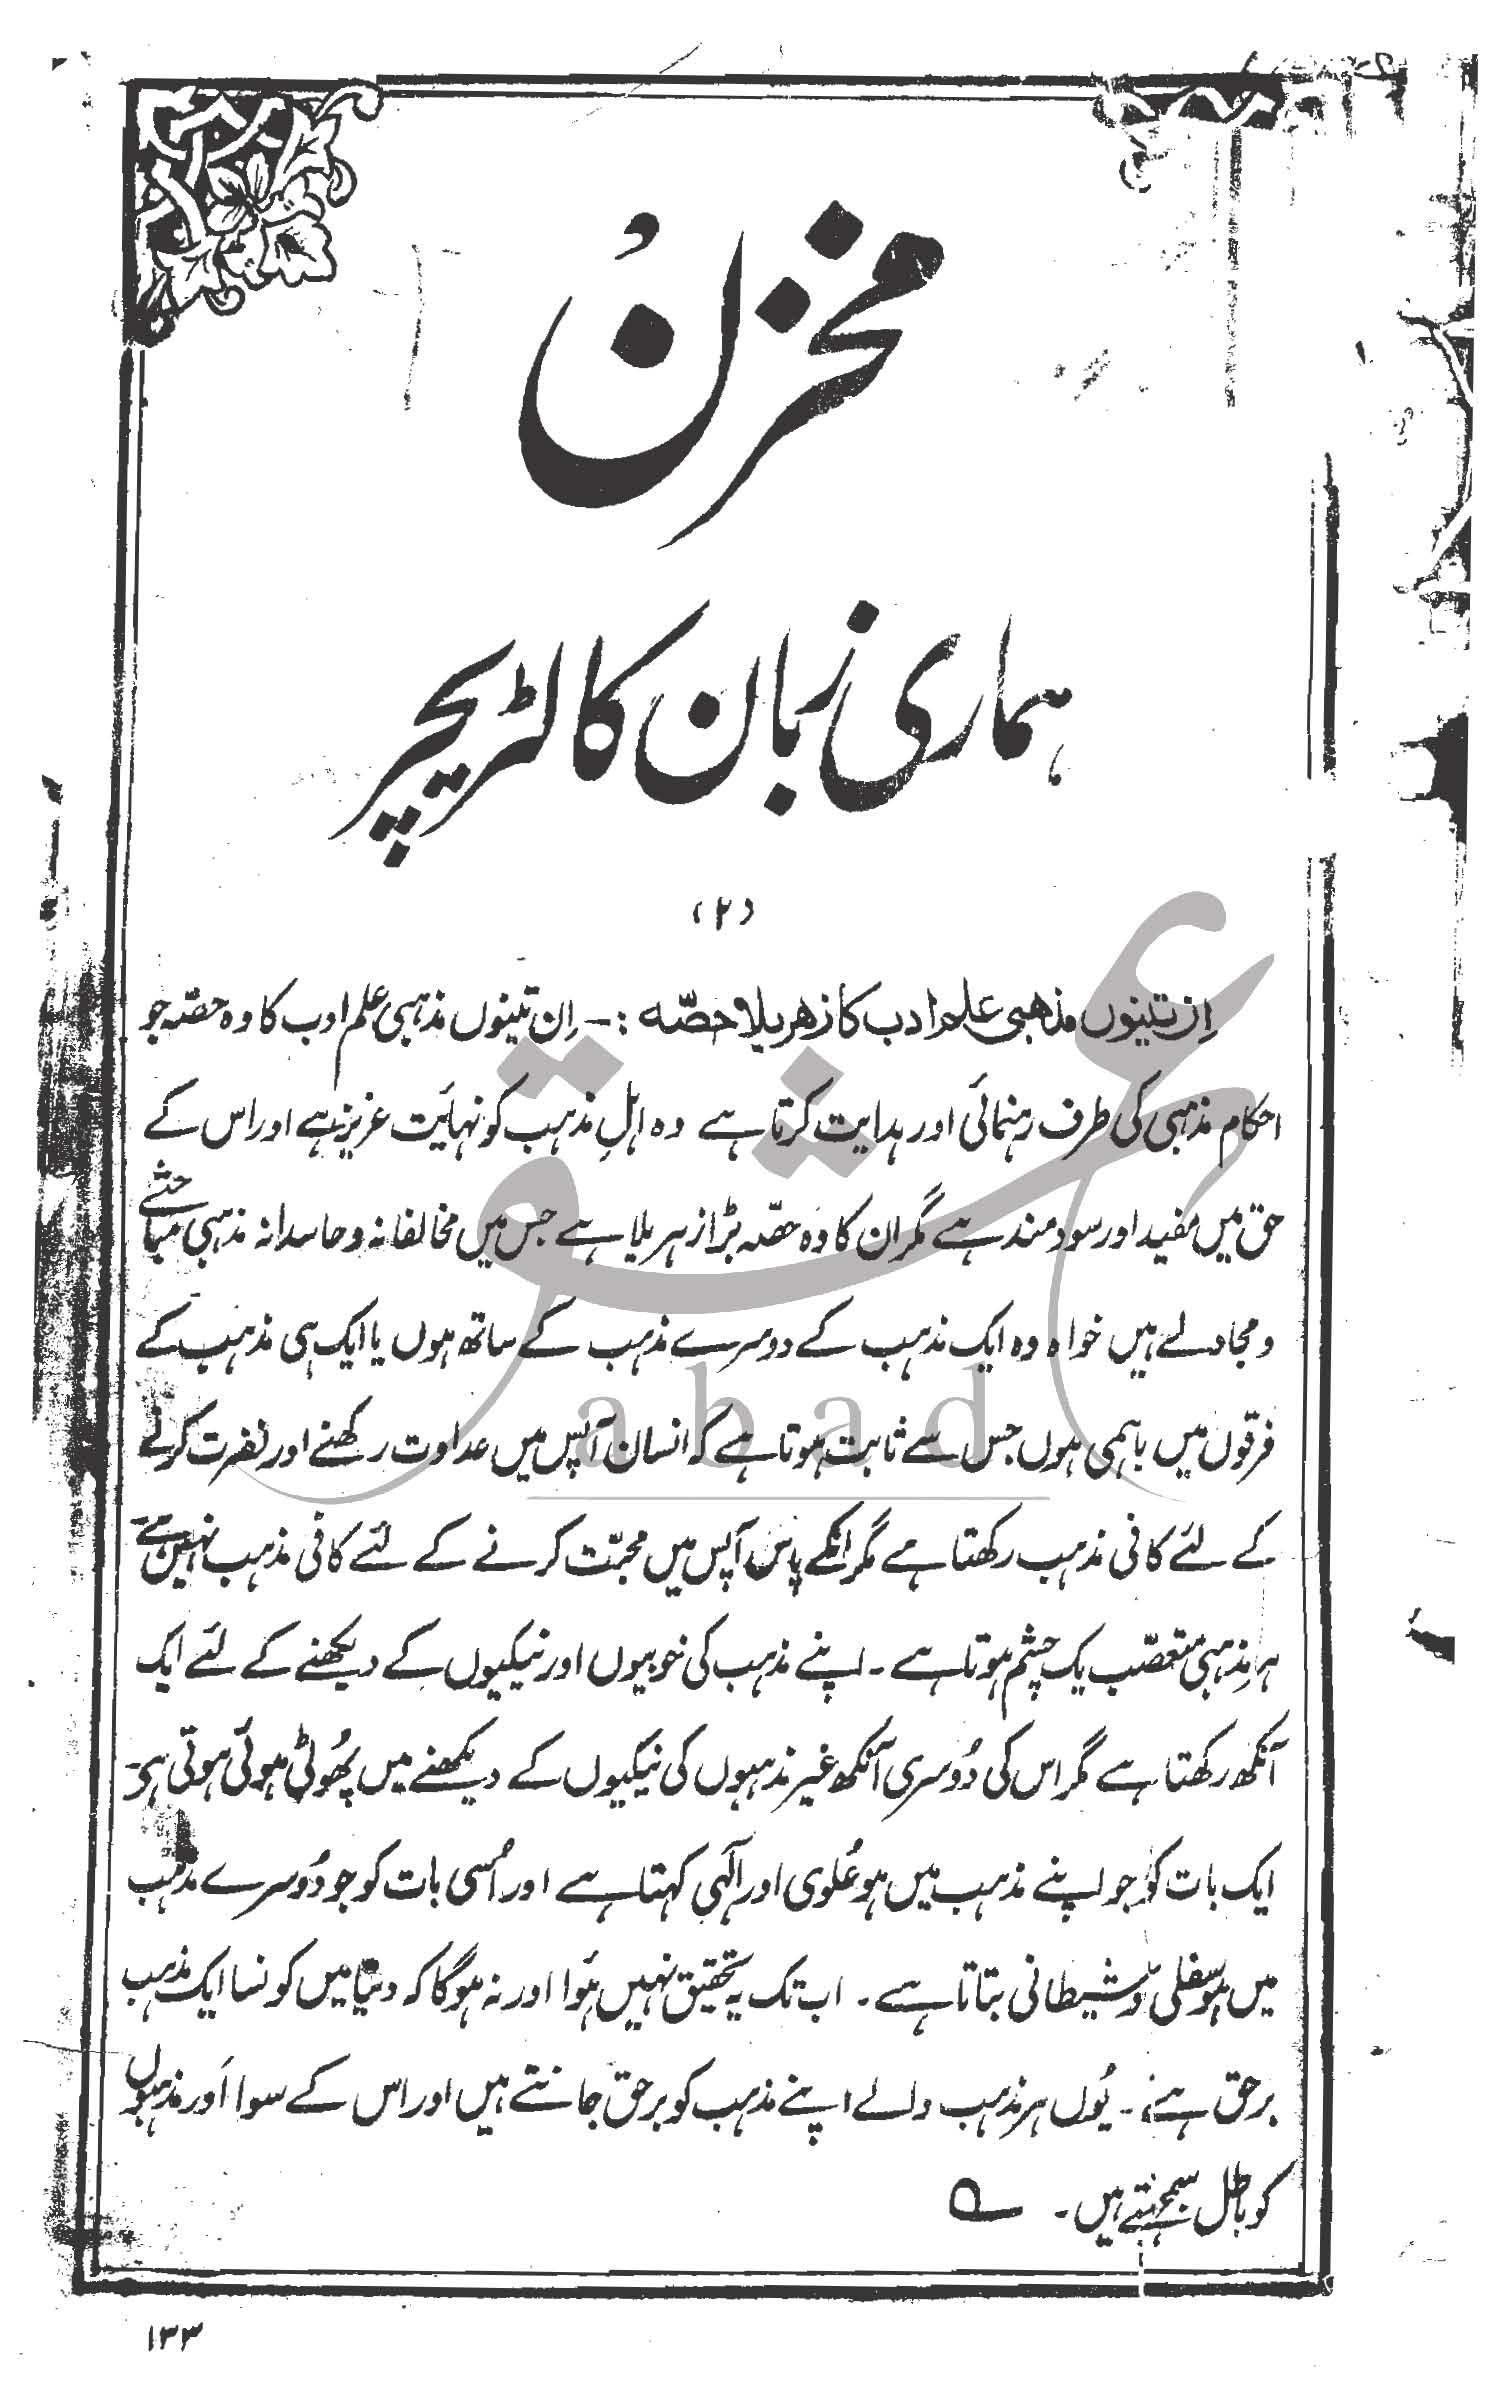 مخزن
ہماری زبان کا لٹریچر
(۲)
اِن تینوں مذهبی علم ادب کا زهریلا حصّہ :- اِن تینوں مذہبی علم ادب کا وہ حصّہ جو
احکام مذہبی کی طرف رہنمائی اور ہدایت کرتا ہے وہ اہلِ مذہب کو نہائیت عزیز ہے اور اس کے
حق میں مفید اور سودمند ہے مگر ان کا وہ حصّہ بڑا زہریلا ہے جس میں مخالفانہ و حاسدانہ مذہبی مباحثے
و مجادلے ہیں خواہ وہ ایک مذہب کے دوسرے مذہب کے ساتھ ہوں یا ایک ہی مذہب کے
فرقوں میں باہمی ہوں جس سے ثابت ہوتا ہے کہ انسان آپس میں عداوت رکھنے اور نفرت کرنے
کے لئے کافی مذہب رکھتا ہے مگر انکے پاس آپس میں محبّت کرنے کے لئے کافی مذہب نہیں ہے
ہر مذہبی متعصّب یک چشم ہوتا ہے ۔ اپنے مذہب کی خوبیوں اور نیکیوں کے دیکھنے کے لئے ایک
آنکھ رکھتا ہے مگر اس کی دُوسری آنکھ غیر مذہبوں کی نیکیوں کے دیکھنے میں پھُوٹی ہوئی ہوتی ہی۔
ایک بات کو جو اپنے مذہب میں ہو عُلوی اور الٰہی کہتا ہے اور اُسی بات کو جو دُوسرے مذہب
میں ہو سفلی و شیطانی بتاتا ہے ۔ اب تک یہ تحقیق نہیں ہُوا اور نہ ہوگا کہ دنیا میں کونسا ایک مذہب
برحق ہے ۔ یُوں ہر مذہب والے اپنے مذہب کو برحق جانتے ہیں اور اس کے سوا اَور مذہبوں
کو باطل سمجھتے ہیں ۔ ؎
۱۳۳
عشق
abad